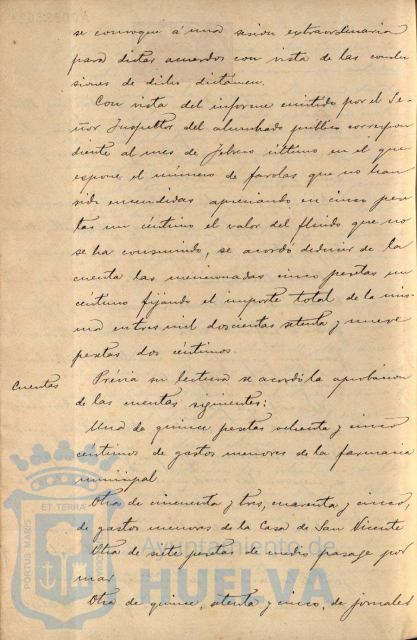 se convoque á una sesion extraordinaria
para dictar acuerdos con vista de las conclu
siones de dicho dictámen.
Con vista del informe emitido por el Se
ñor Inspector del alumbrado público correspon
diente al mes de Febrero último en el que
expone el número de farolas que no han
sido encendidas apreciando en cinco pese
tas un céntimo el valor del fluido que no
se ha consumido, se acordó deducir de la
cuenta las mencionadas cinco pesetas un
céntimo fijando el importe total de la mis
ma en tres mil doscientas setenta y nueve
pesetas dos céntimos.
Cuentas
Prévia su lectura se acordó la aprobacion
de las cuentas siguientes:
Una de quince pesetas ochenta y cinco
centimos de gastos menores de la farmacia
municipal
Otra de cincuenta y tres, cuarenta y cinco,
de gastos menores de la Casa de San Vicente
Otra de siete pesetas de medio pasage por
mar
Otra de quince, setenta y cinco, de jornales
PORTUS MARIS
ET TERRAE
Ayuntamiento de
HUELVA